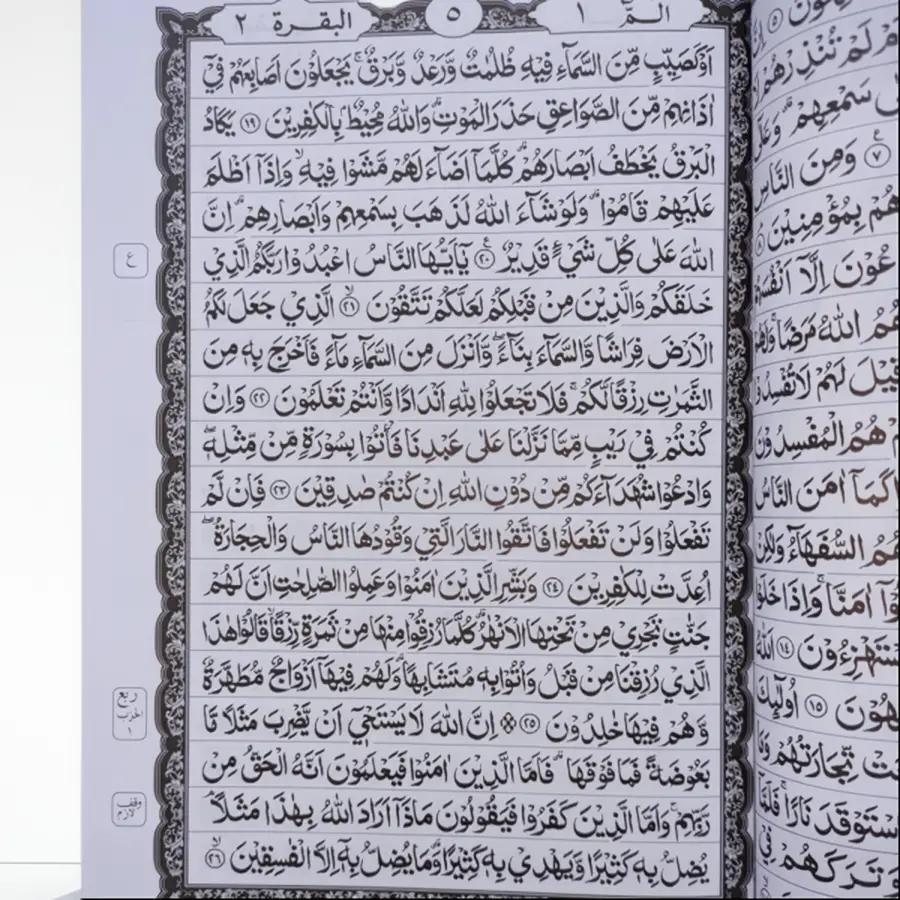 الٓمّٓ ١
٥
البقرة ٢
اَوْ كَصَيِّبٍ مِّنَ السَّمَآءِ فِيْهِ ظُلُمٰتٌ وَّرَعْدٌ وَّبَرْقٌ ۚ يَجْعَلُوْنَ اَصَابِعَهُمْ فِيْٓ
اٰذَانِهِمْ مِّنَ الصَّوَاعِقِ حَذَرَ الْمَوْتِ ؕ وَاللّٰهُ مُحِيْطٌۢ بِالْكٰفِرِيْنَ ﴿١٩﴾ يَكَادُ
الْبَرْقُ يَخْطَفُ اَبْصَارَهُمْ ؕ كُلَّمَآ اَضَآءَ لَهُمْ مَّشَوْا فِيْهِ ۙ وَاِذَآ اَظْلَمَ
عَلَيْهِمْ قَامُوْا ؕ وَلَوْ شَآءَ اللّٰهُ لَذَهَبَ بِسَمْعِهِمْ وَاَبْصَارِهِمْ ؕ اِنَّ
اللّٰهَ عَلٰى كُلِّ شَيْءٍ قَدِيْرٌ ﴿٢٠﴾ يٰٓاَيُّهَا النَّاسُ اعْبُدُوْا رَبَّكُمُ الَّذِيْ
خَلَقَكُمْ وَالَّذِيْنَ مِنْ قَبْلِكُمْ لَعَلَّكُمْ تَتَّقُوْنَ ﴿٢١﴾ الَّذِيْ جَعَلَ لَكُمُ
الْاَرْضَ فِرَاشًا وَّالسَّمَآءَ بِنَآءً ۖ وَّاَنْزَلَ مِنَ السَّمَآءِ مَآءً فَاَخْرَجَ بِهٖ مِنَ
الثَّمَرٰتِ رِزْقًا لَّكُمْ ۚ فَلَا تَجْعَلُوْا لِلّٰهِ اَنْدَادًا وَّاَنْتُمْ تَعْلَمُوْنَ ﴿٢٢﴾ وَاِنْ
كُنْتُمْ فِيْ رَيْبٍ مِّمَّا نَزَّلْنَا عَلٰى عَبْدِنَا فَاْتُوْا بِسُوْرَةٍ مِّنْ مِّثْلِهٖ ۖ
وَادْعُوْا شُهَدَآءَكُمْ مِّنْ دُوْنِ اللّٰهِ اِنْ كُنْتُمْ صٰدِقِيْنَ ﴿٢٣﴾ فَاِنْ لَّمْ
تَفْعَلُوْا وَلَنْ تَفْعَلُوْا فَاتَّقُوا النَّارَ الَّتِيْ وَقُوْدُهَا النَّاسُ وَالْحِجَارَةُ ۖ
اُعِدَّتْ لِلْكٰفِرِيْنَ ﴿٢٤﴾ وَبَشِّرِ الَّذِيْنَ اٰمَنُوْا وَعَمِلُوا الصّٰلِحٰتِ اَنَّ لَهُمْ
جَنّٰتٍ تَجْرِيْ مِنْ تَحْتِهَا الْاَنْهٰرُ ؕ كُلَّمَا رُزِقُوْا مِنْهَا مِنْ ثَمَرَةٍ رِّزْقًا ۙ قَالُوْا هٰذَا
الَّذِيْ رُزِقْنَا مِنْ قَبْلُ وَاُتُوْا بِهٖ مُتَشَابِهًا ؕ وَلَهُمْ فِيْهَآ اَزْوَاجٌ مُّطَهَّرَةٌ
وَّهُمْ فِيْهَا خٰلِدُوْنَ ﴿٢٥﴾ اِنَّ اللّٰهَ لَا يَسْتَحْيٖٓ اَنْ يَّضْرِبَ مَثَلًا مَّا
بَعُوْضَةً فَمَا فَوْقَهَا ؕ فَاَمَّا الَّذِيْنَ اٰمَنُوْا فَيَعْلَمُوْنَ اَنَّهُ الْحَقُّ مِنْ
رَّبِّهِمْ ۚ وَاَمَّا الَّذِيْنَ كَفَرُوْا فَيَقُوْلُوْنَ مَاذَآ اَرَادَ اللّٰهُ بِهٰذَا مَثَلًا ۘ
يُضِلُّ بِهٖ كَثِيْرًا وَّيَهْدِيْ بِهٖ كَثِيْرًا ؕ وَمَا يُضِلُّ بِهٖٓ اِلَّا الْفٰسِقِيْنَ ﴿٢٦﴾
ع
ربع الحزب ١
وقف لازم
لَمْ تُنْذِرْهُمْ
سَمْعِهِمْ ؕ وَعَلٰٓى
﴿٧﴾ وَمِنَ النَّاسِ
هُمْ بِمُؤْمِنِيْنَ ﴿٨﴾
عُوْنَ اِلَّآ اَنْفُسَهُمْ
هُمُ اللّٰهُ مَرَضًا ۚ وَلَهُمْ
قِيْلَ لَهُمْ لَا تُفْسِدُوْا
هُمُ الْمُفْسِدُوْنَ
كَمَآ اٰمَنَ النَّاسُ
هُمُ السُّفَهَآءُ وَلٰكِنْ
اٰمَنَّا ۚ وَاِذَا خَلَوْا
﴿١٤﴾ اَللّٰهُ
﴿١٥﴾ اُولٰٓئِكَ
تِّجَارَتُهُمْ وَمَا
اسْتَوْقَدَ نَارًا ۚ فَلَمَّآ
وَتَرَكَهُمْ فِيْ